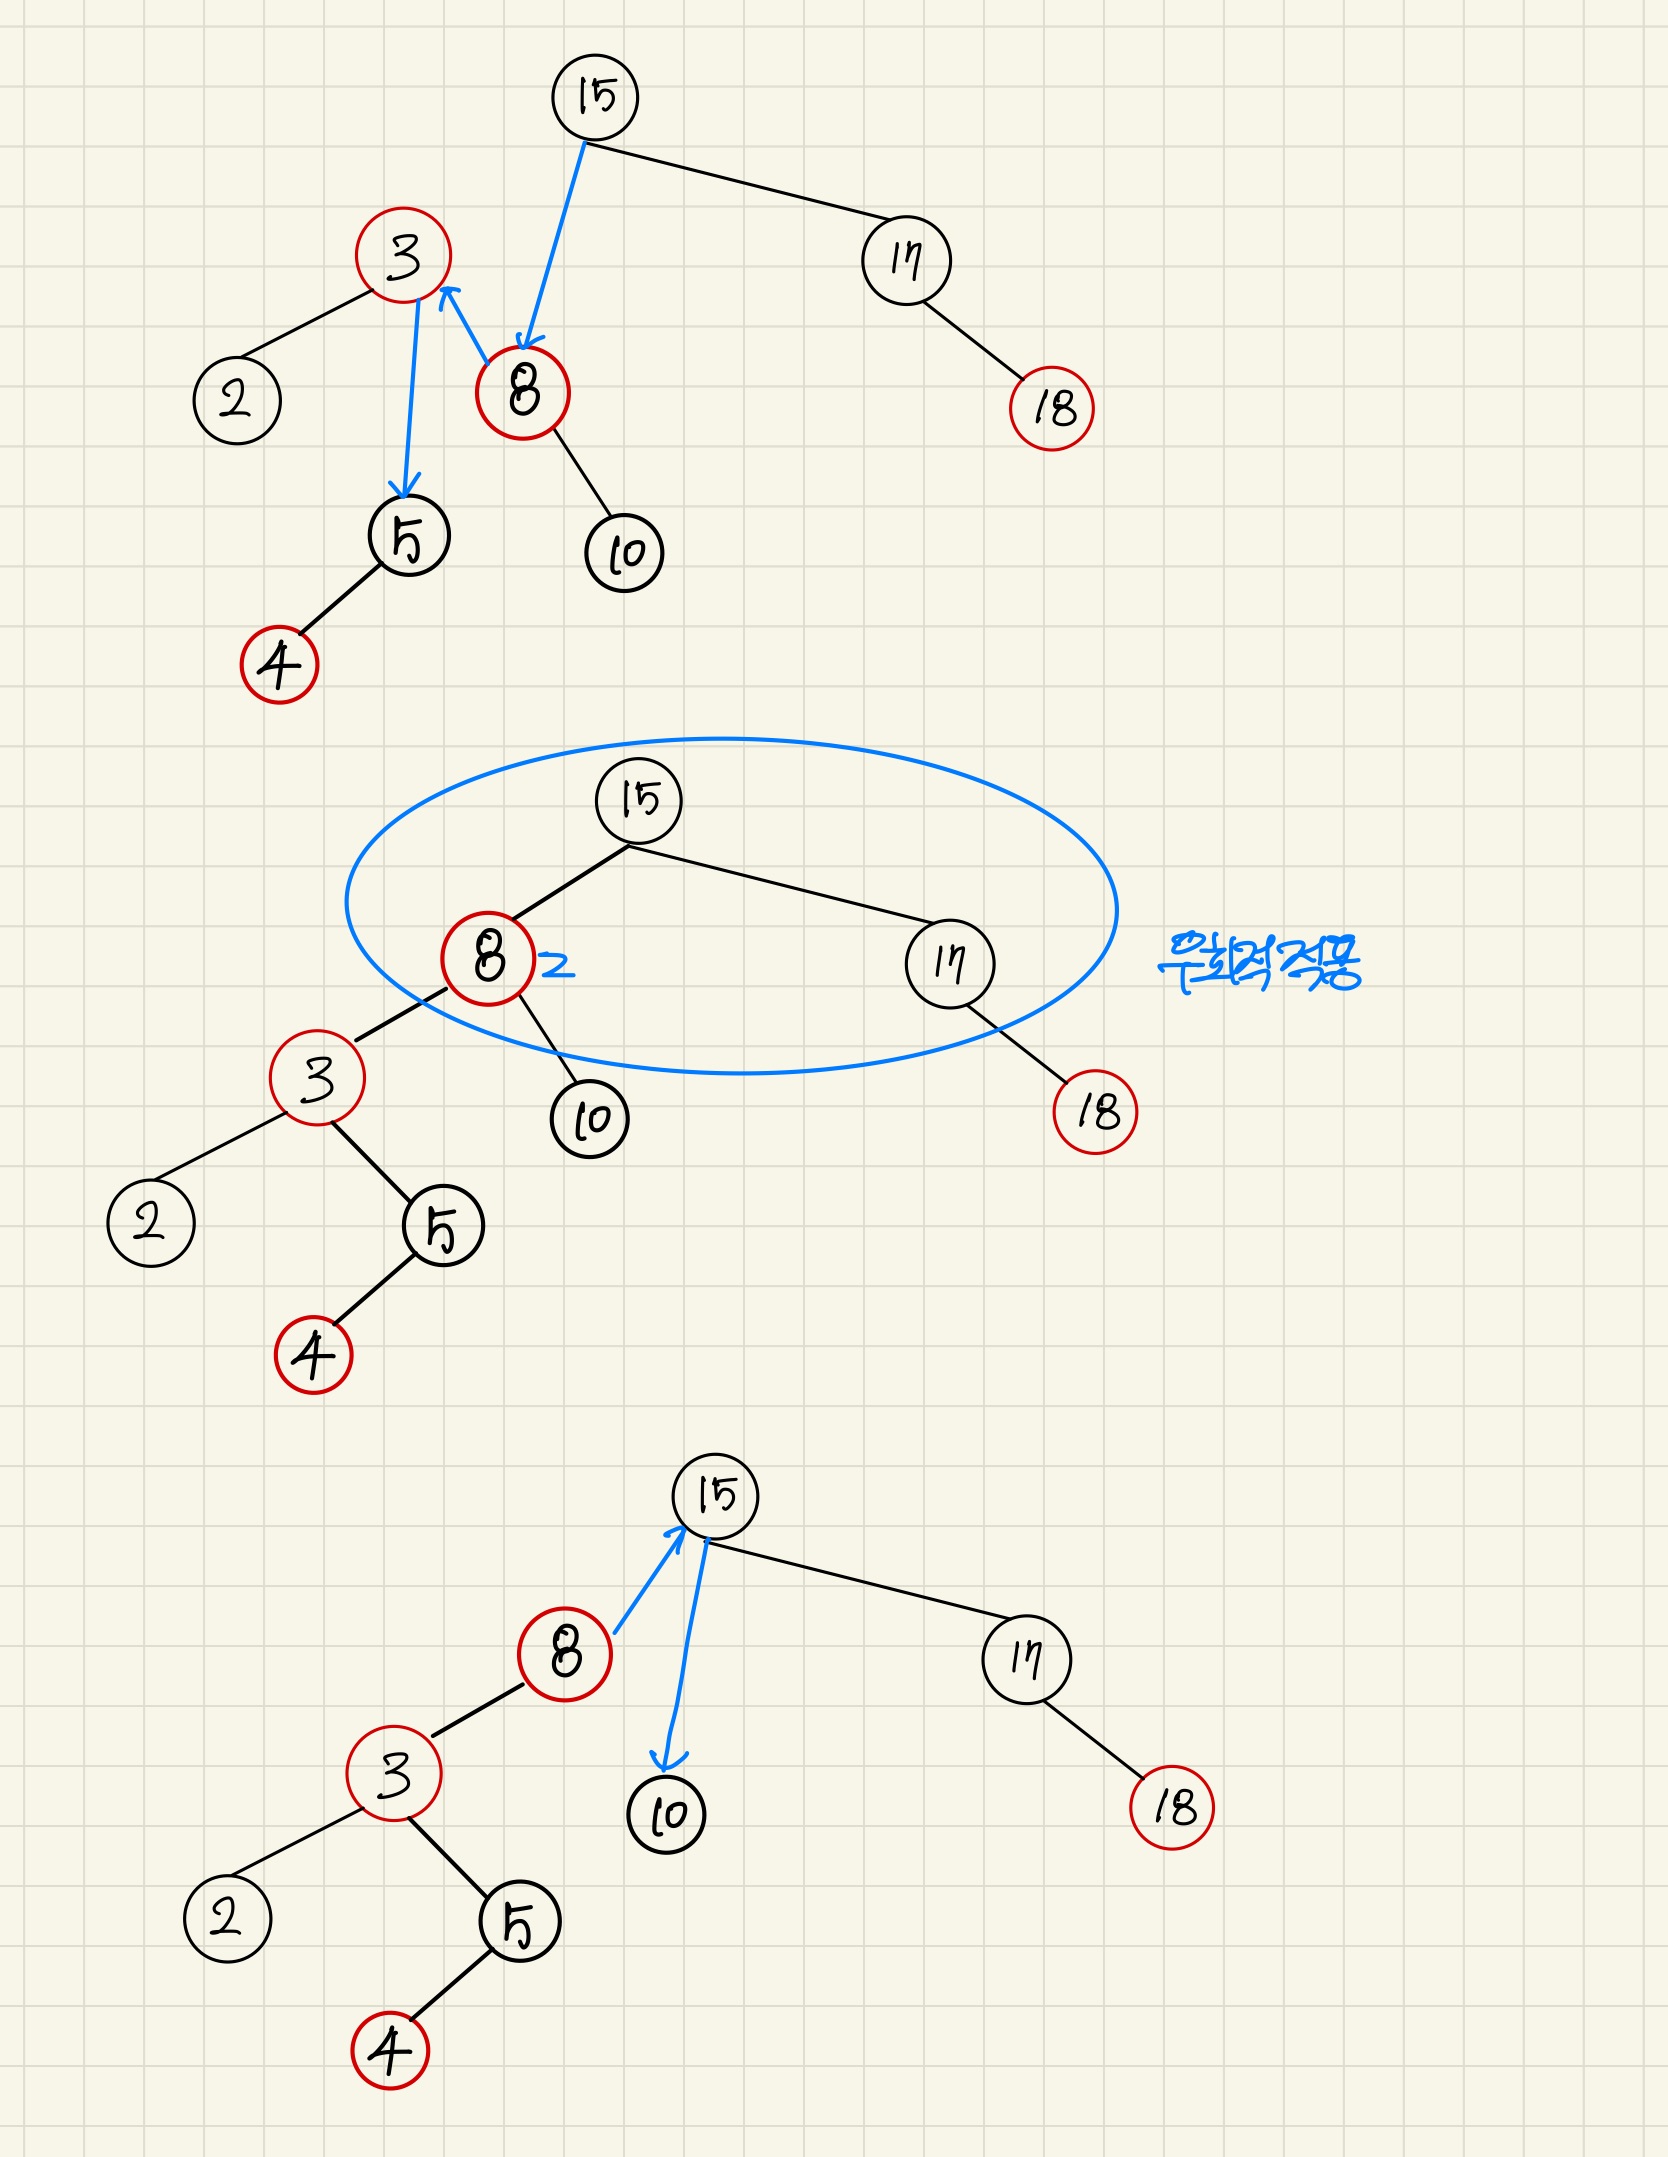 15
3
17
2
8
18
5
10
4
15
8 2
17
우회적 적용
3
10
18
2
5
4
15
8
17
3
10
18
2
5
4